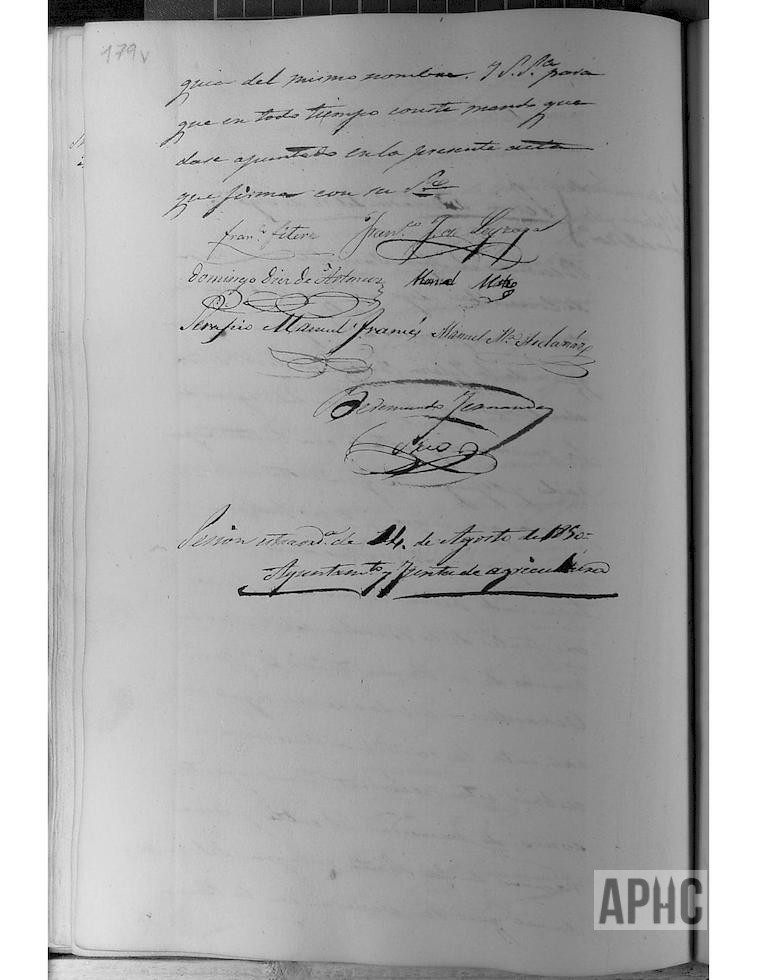 179v
quia del mismo nombre. Y S.Sª. para
que en todo tiempo conste mandó que
dase apuntado en la presente acta
que firma con su Srio
Franº. Fitero Franco. J. de Lizraga
Domingo Dier de Artenur Manuel
Serapio Manuel Francés Manuel Mª.
Beremundo Fernandez
Srio
Sesion estraordª. de 14. de Agosto de 1850=
Ayuntamto. y Junta de agricultura
APHC